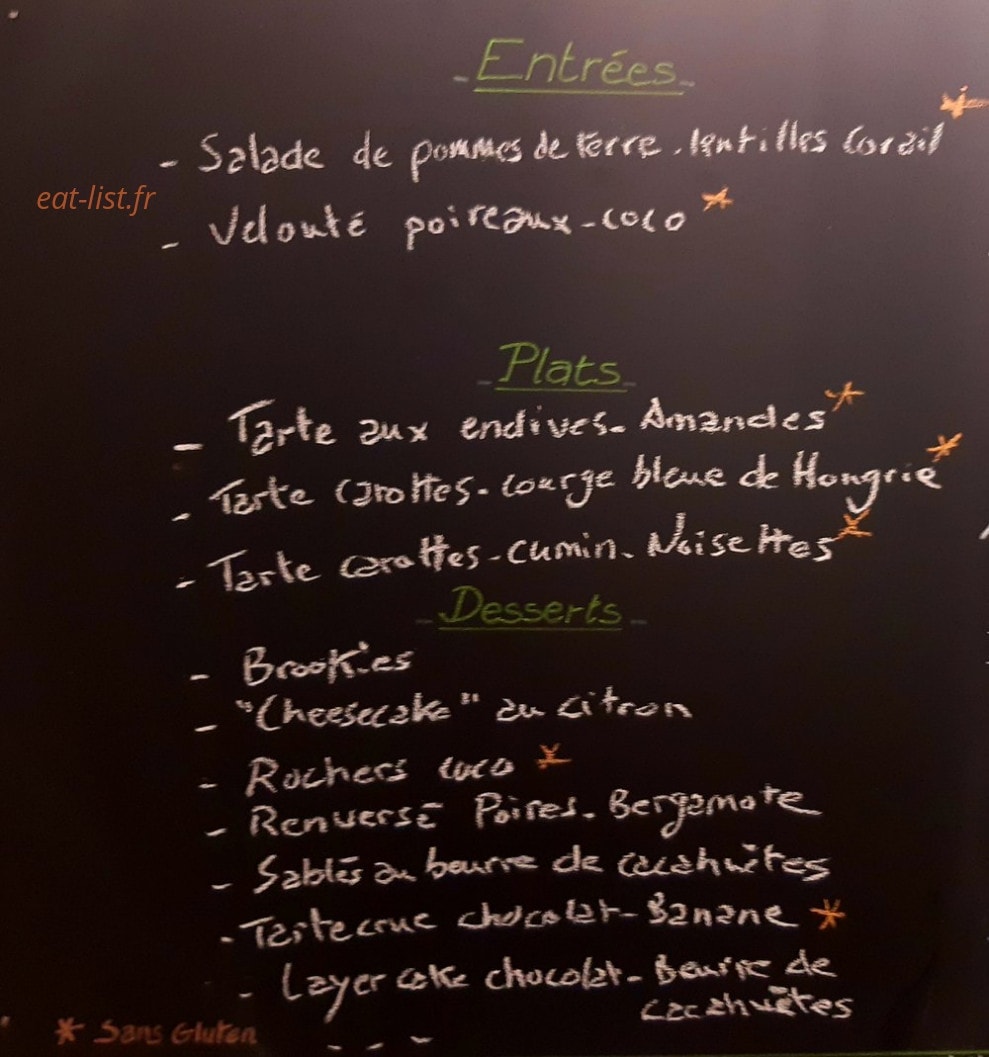 - Entrées -
- Salade de pommes de terre. lentilles Corail *
eat-list.fr
- Velouté poireaux-coco *
- Plats -
- Tarte aux endives- Amandes *
- Tarte Carottes- courge bleue de Hongrie *
- Tarte carottes-cumin- Noisettes *
- Desserts -
- Brookies
- "Cheesecake" au citron
- Rochers coco *
- Renversé Poires- Bergamote
- Sablés au beurre de cacahuètes
- Tarte crue chocolat- Banane *
- Layer cake chocolat- Beurre de
cacahuètes
* Sans Gluten
- - -